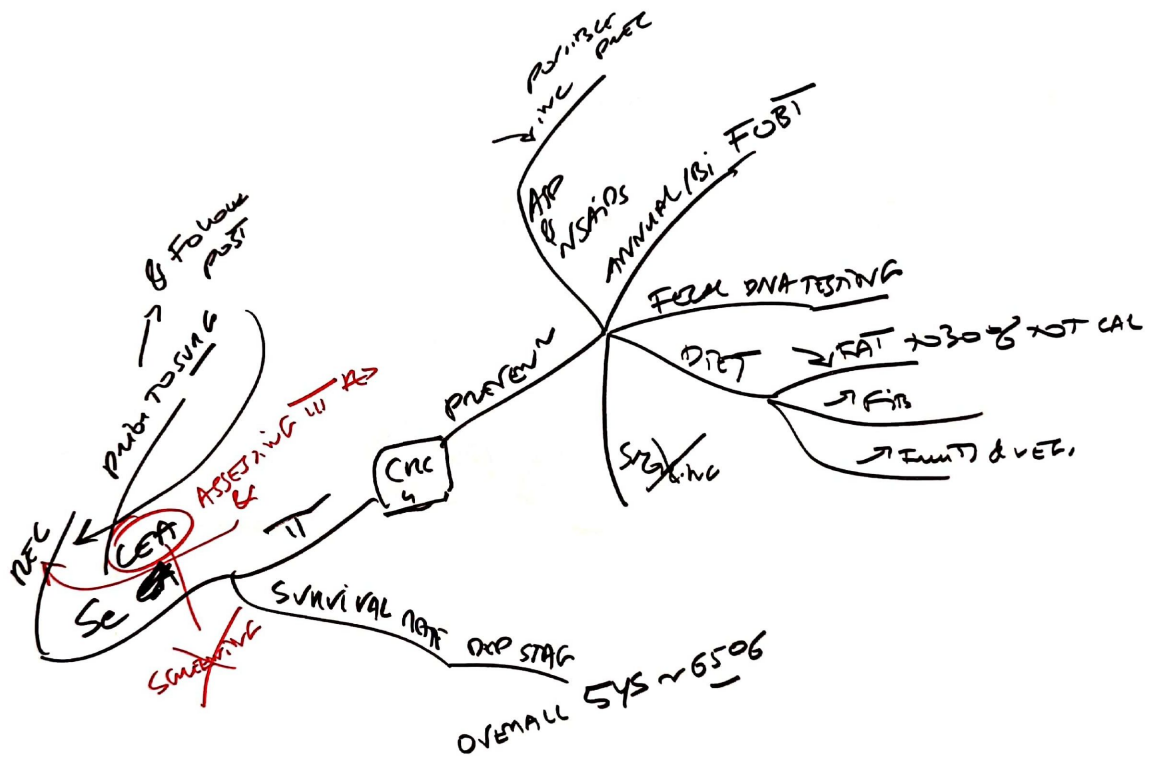 POSSIBLE
↘ INC PREC
ASP
&
NSAIDS
ANNUAL/Bi FOBT
FECAL DNA TESTING
DIET
↘ FAT TO 30% TOT CAL
↗ FIB
↗ FRUITS & VEG.
PREVENTN
CRC
4
& FOLLOW
POST
PRIOR TO SURG
ASSESSING
&
REC
CEA
Se
SCREENING
SURVIVAL RATE DEP STAG
OVERALL 5YS ~ 65%